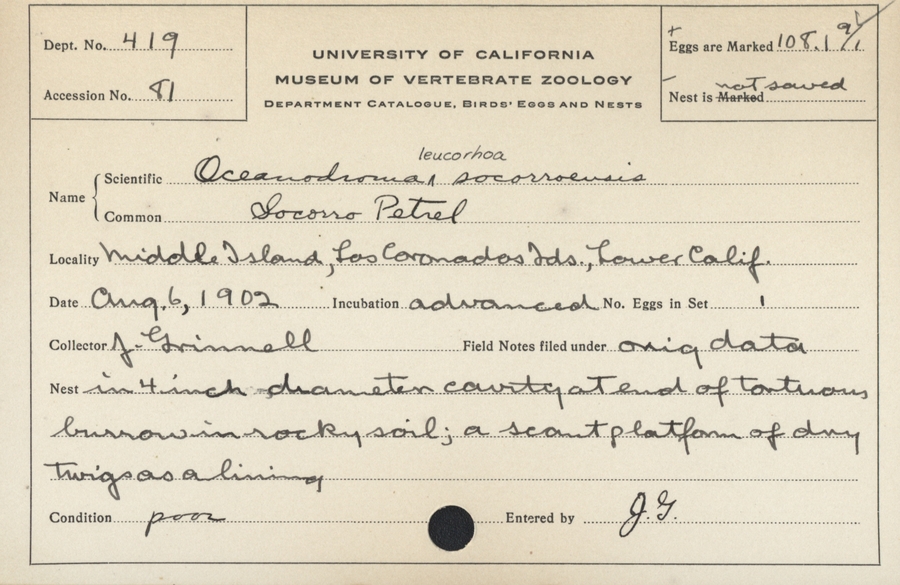 Dept. No. 419
Accession No. 81
UNIVERSITY OF CALIFORNIA
MUSEUM OF VERTEBRATE ZOOLOGY
DEPARTMENT CATALOGUE, BIRDS' EGGS AND NESTS
+
Eggs are Marked 108.1 9/1
- not saved
Nest is Marked
leucorhoa
Name { Scientific Oceanodroma ∧ socorroensis
Common Socorro Petrel
Locality Middle Island, Los Coronados Ids., Lower Calif.
Date Aug. 6, 1902 Incubation advanced No. Eggs in Set 1
Collector J. Grinnell Field Notes filed under orig data
Nest in 4 inch diameter cavity at end of tortuous
burrow in rocky soil; a scant platform of dry
twigs as a lining
Condition poor Entered by J.G.